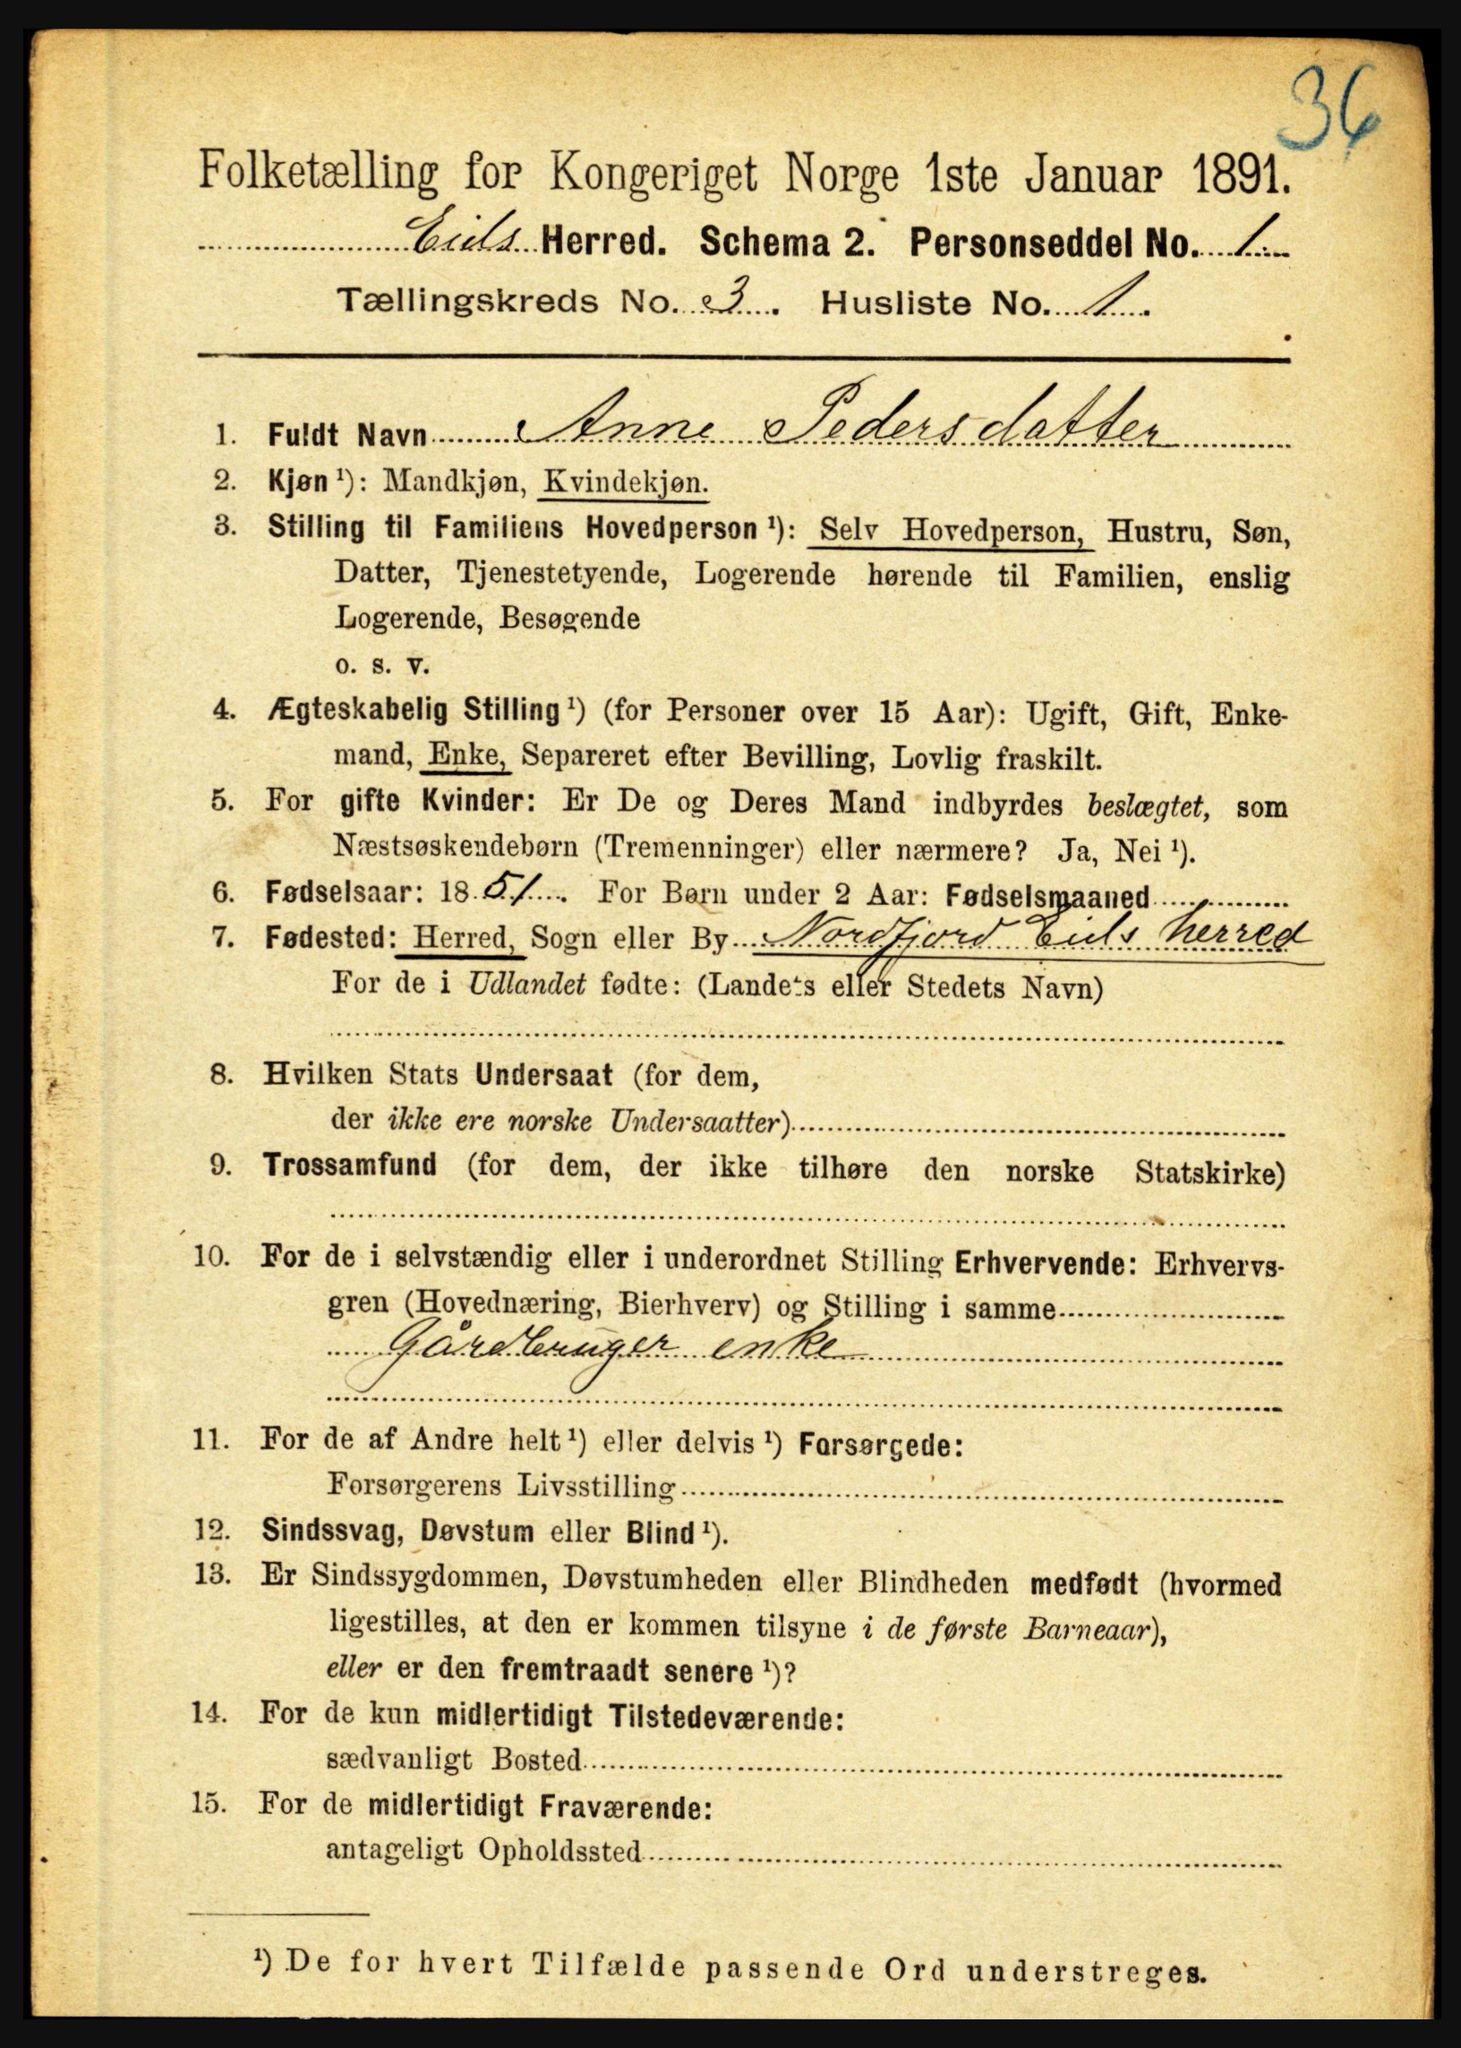 36
Folketælling for Kongeriget Norge 1ste Januar 1891.
Eids Herred. Schema 2. Personseddel No. 1
Tællingskreds No. 3. Husliste No. 1.
1. Fuldt Navn Anne Pedersdatter
2. Kjøn ¹): Mandkjøn, Kvindekjøn.
3. Stilling til Familiens Hovedperson ¹): Selv Hovedperson, Hustru, Søn,
Datter, Tjenestetyende, Logerende hørende til Familien, enslig
Logerende, Besøgende
o. s. v.
4. Ægteskabelig Stilling ¹) (for Personer over 15 Aar): Ugift, Gift, Enke-
mand, Enke, Separeret efter Bevilling, Lovlig fraskilt.
5. For gifte Kvinder: Er De og Deres Mand indbyrdes beslægtet, som
Næstsøskendebørn (Tremenninger) eller nærmere? Ja, Nei ¹).
6. Fødselsaar: 1851. For Børn under 2 Aar: Fødselsmaaned
7. Fødested: Herred, Sogn eller By Nordfjord Eids herred
For de i Udlandet fødte: (Landets eller Stedets Navn)
8. Hvilken Stats Undersaat (for dem,
der ikke ere norske Undersaatter)
9. Trossamfund (for dem, der ikke tilhøre den norske Statskirke)
10. For de i selvstændig eller i underordnet Stilling Erhvervende: Erhvervs-
gren (Hovednæring, Bierhverv) og Stilling i samme
Gårdbruger enke
11. For de af Andre helt ¹) eller delvis ¹) Forsørgede:
Forsørgerens Livsstilling
12. Sindssvag, Døvstum eller Blind ¹).
13. Er Sindssygdommen, Døvstumheden eller Blindheden medfødt (hvormed
ligestilles, at den er kommen tilsyne i de første Barneaar),
eller er den fremtraadt senere ¹)?
14. For de kun midlertidigt Tilstedeværende:
sædvanligt Bosted
15. For de midlertidigt Fraværende:
antageligt Opholdssted
¹) De for hvert Tilfælde passende Ord understreges.